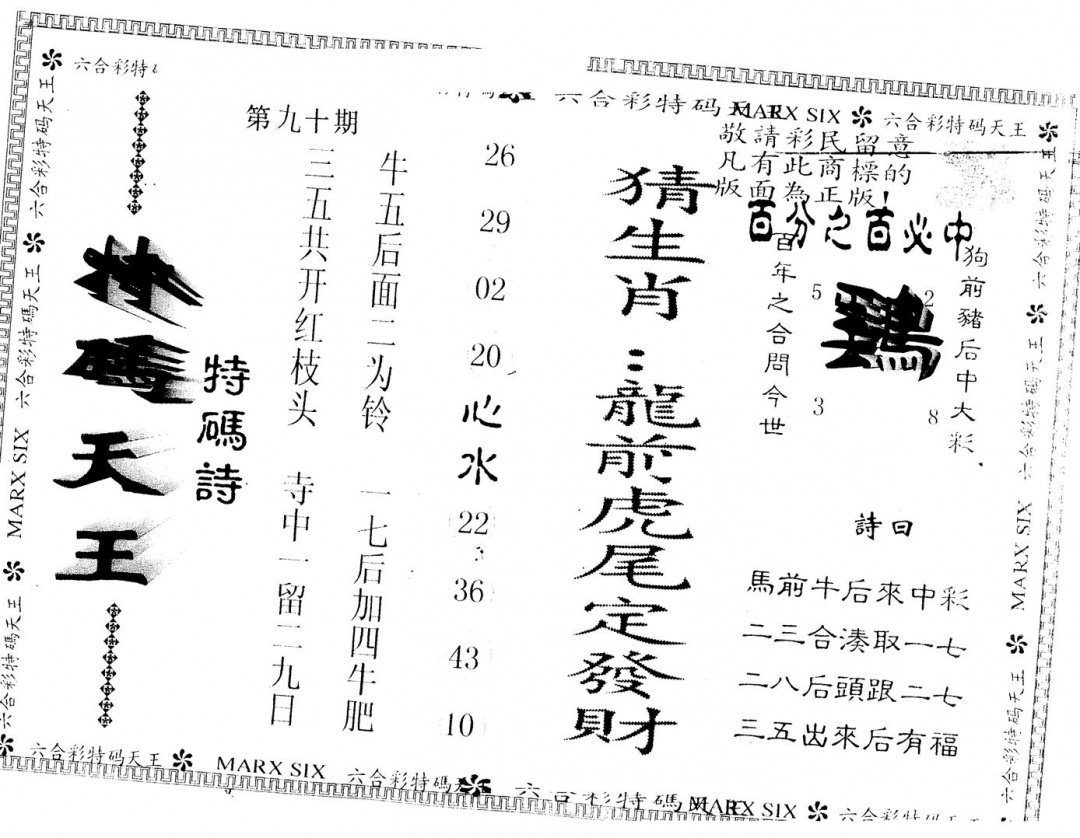 六合彩特
第九十期
特碼天王
特碼詩
牛五后面二为铃
一七后加四牛肥
三五共开红枝头
寺中一留二九日
26
29
02
20
心水
22
36
43
10
猜生肖:龍前虎尾定發財
六合彩特码
MARX SIX
六合彩特码天王
敬請彩民留意
凡有此商標的
版面為正版!
百分之百必中
狗前豬后中大彩.
百年之合問今世
5
2
3
8
詩曰
馬前牛后來中彩
二三合湊取一七
二八后頭跟二七
三五出來后有福
六合彩特碼天王
六合彩特碼天王
MARX SIX
六合彩特碼天王
六合彩特码天王
六合彩特码天王
MARX SIX
六合彩特码天王
MARX SIX
六合彩特碼
六合彩特碼
MARX SIX
六合彩特码天王